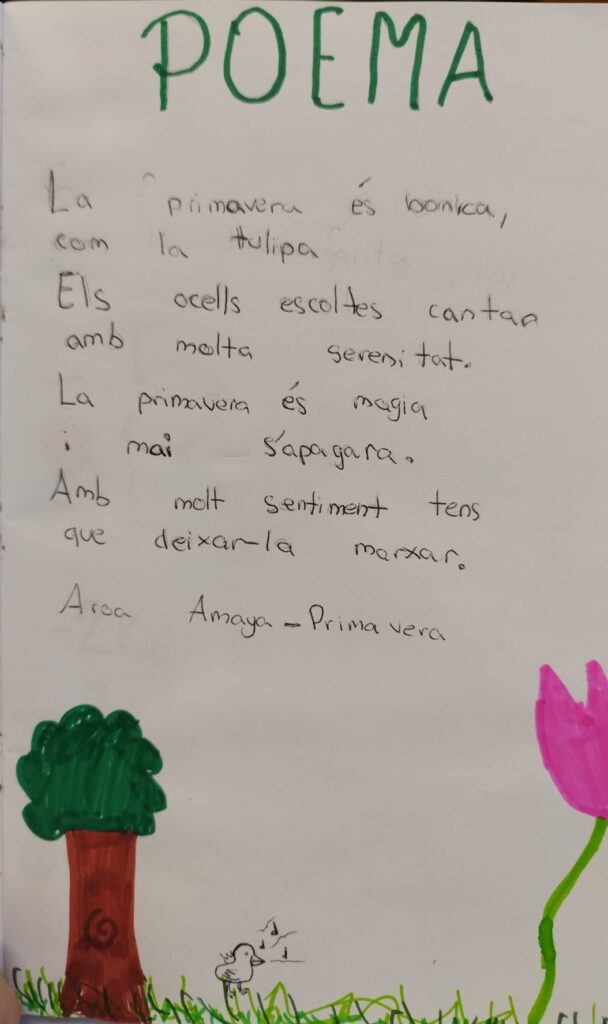 POEMA
La primavera és bonica,
com la tulipa
Els ocells escoltes cantan
amb molta serenitat.
La primavera és magia
i mai s'apagara.
Amb molt sentiment tens
que deixar-la marxar.
Aroa Amaya - Primavera